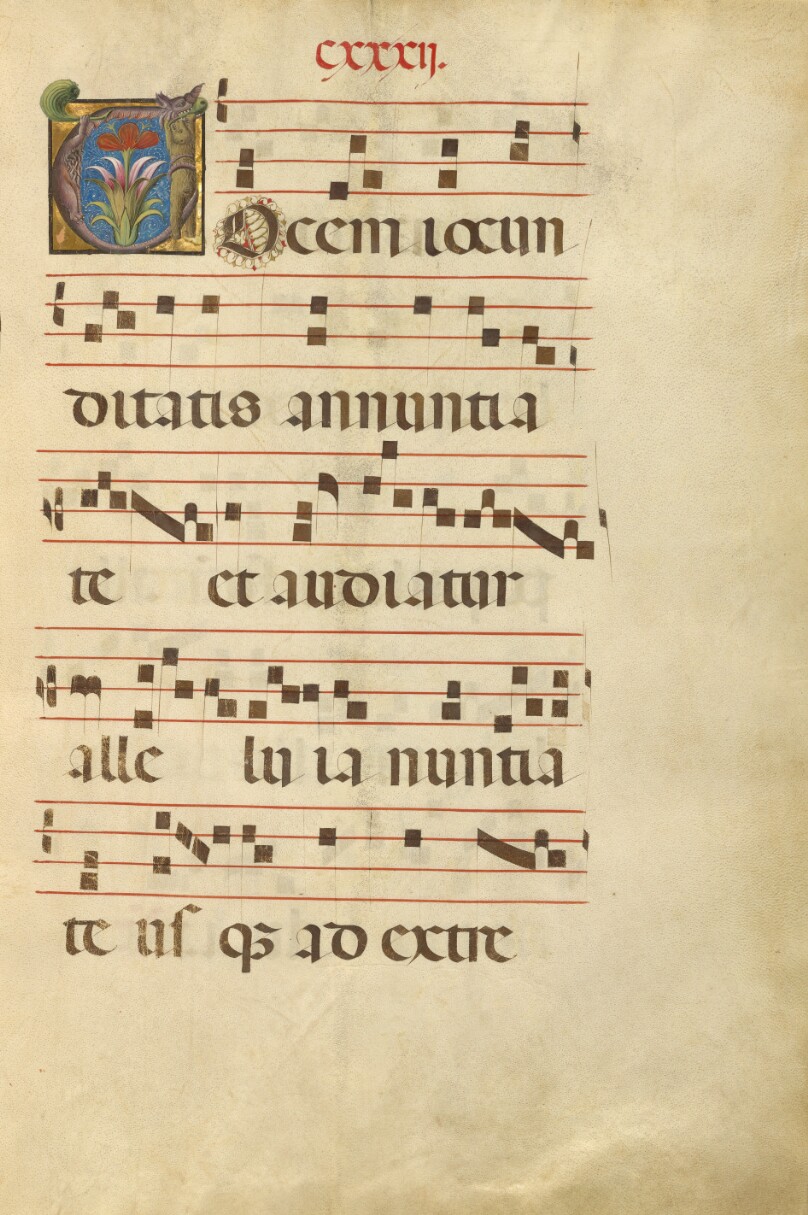 cxxxij.
VOcem iocun
ditatis annuntia
te et audiatur
alle lu ia nuntia
te usqꝫ ad extre